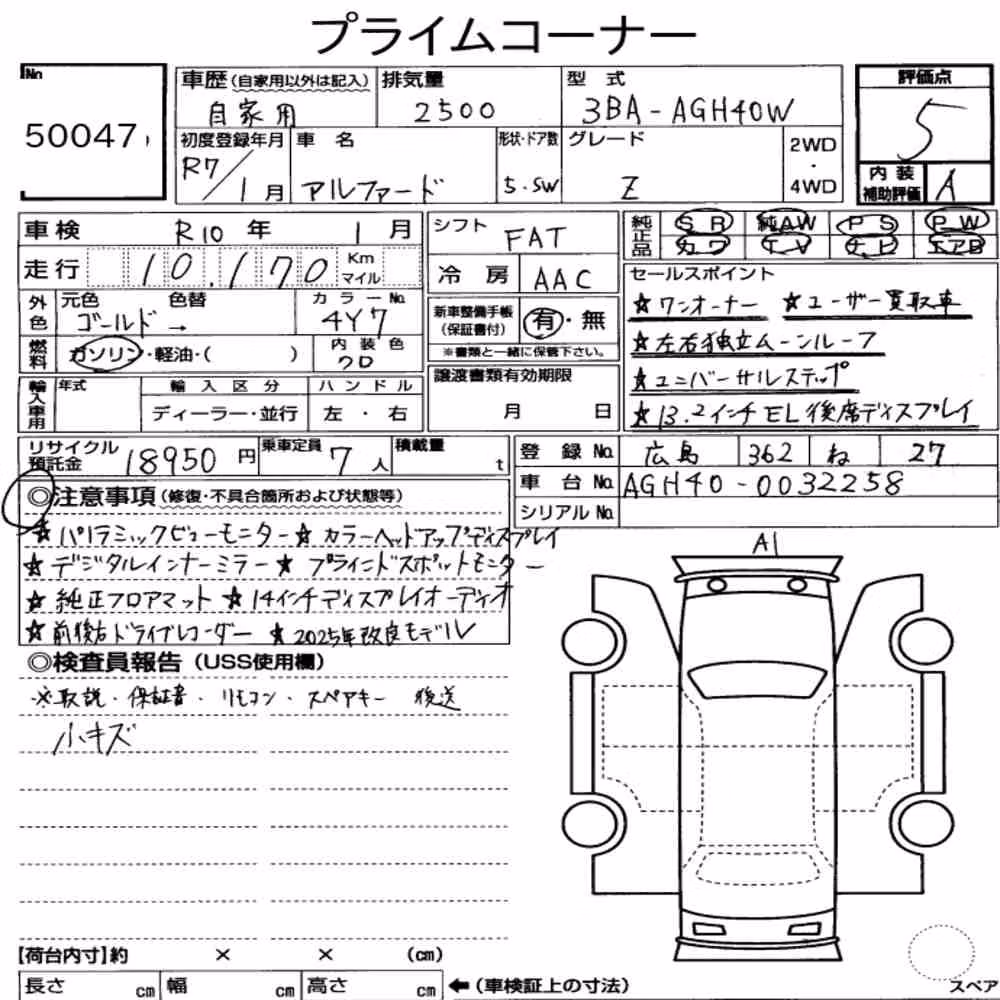 プライムコーナー
No
50047
車歴 (自家用以外は記入) 自家用
排気量 2500
型式 3BA-AGH40W
評価点 5
初度登録年月 R7/1月
車名 アルファード
形状・ドア数 5.SW
グレード Z
2WD・4WD
内装補助評価 A
車検 R10年 1月
走行 10,170 Km マイル
外色 元色 ゴールド 色替 →
カラーNo. 4Y7
燃料 ガソリン・軽油・( )
内装色 クロ
輸入車用 年式 輸入区分 ハンドル
ディーラー・並行 左・右
シフト FAT
冷房 AAC
新車整備手帳 (保証書付) 有・無
※書類と一緒に保管下さい。
譲渡書類有効期限
月 日
純正品 SR 純AW PS PW
カワ TV ナビ エアB
セールスポイント
★ワンオーナー ★ユーザー買取車
★左右独立ムーンルーフ
★ユニバーサルステップ
★13.2インチEL後席ディスプレイ
リサイクル預託金 18950円
乗車定員 7人
積載量 t
登録No. 広島 362 ね 27
車台No. AGH40-0032258
シリアルNo.
◎注意事項 (修復・不具合箇所および状態等)
★パノラミックビューモニター ★カラーヘッドアップディスプレイ
★デジタルインナーミラー ★ブラインドスポットモニター
★純正フロアマット ★14インチディスプレイオーディオ
★前後右ドライブレコーダー ★2025年改良モデル
◎検査員報告 (USS使用欄)
※取説・保証書・リモコン・スペアキー 後送
小キズ
A1
【荷台内寸】約 × × (cm)
長さ cm 幅 cm 高さ cm ←(車検証上の寸法)
スペア